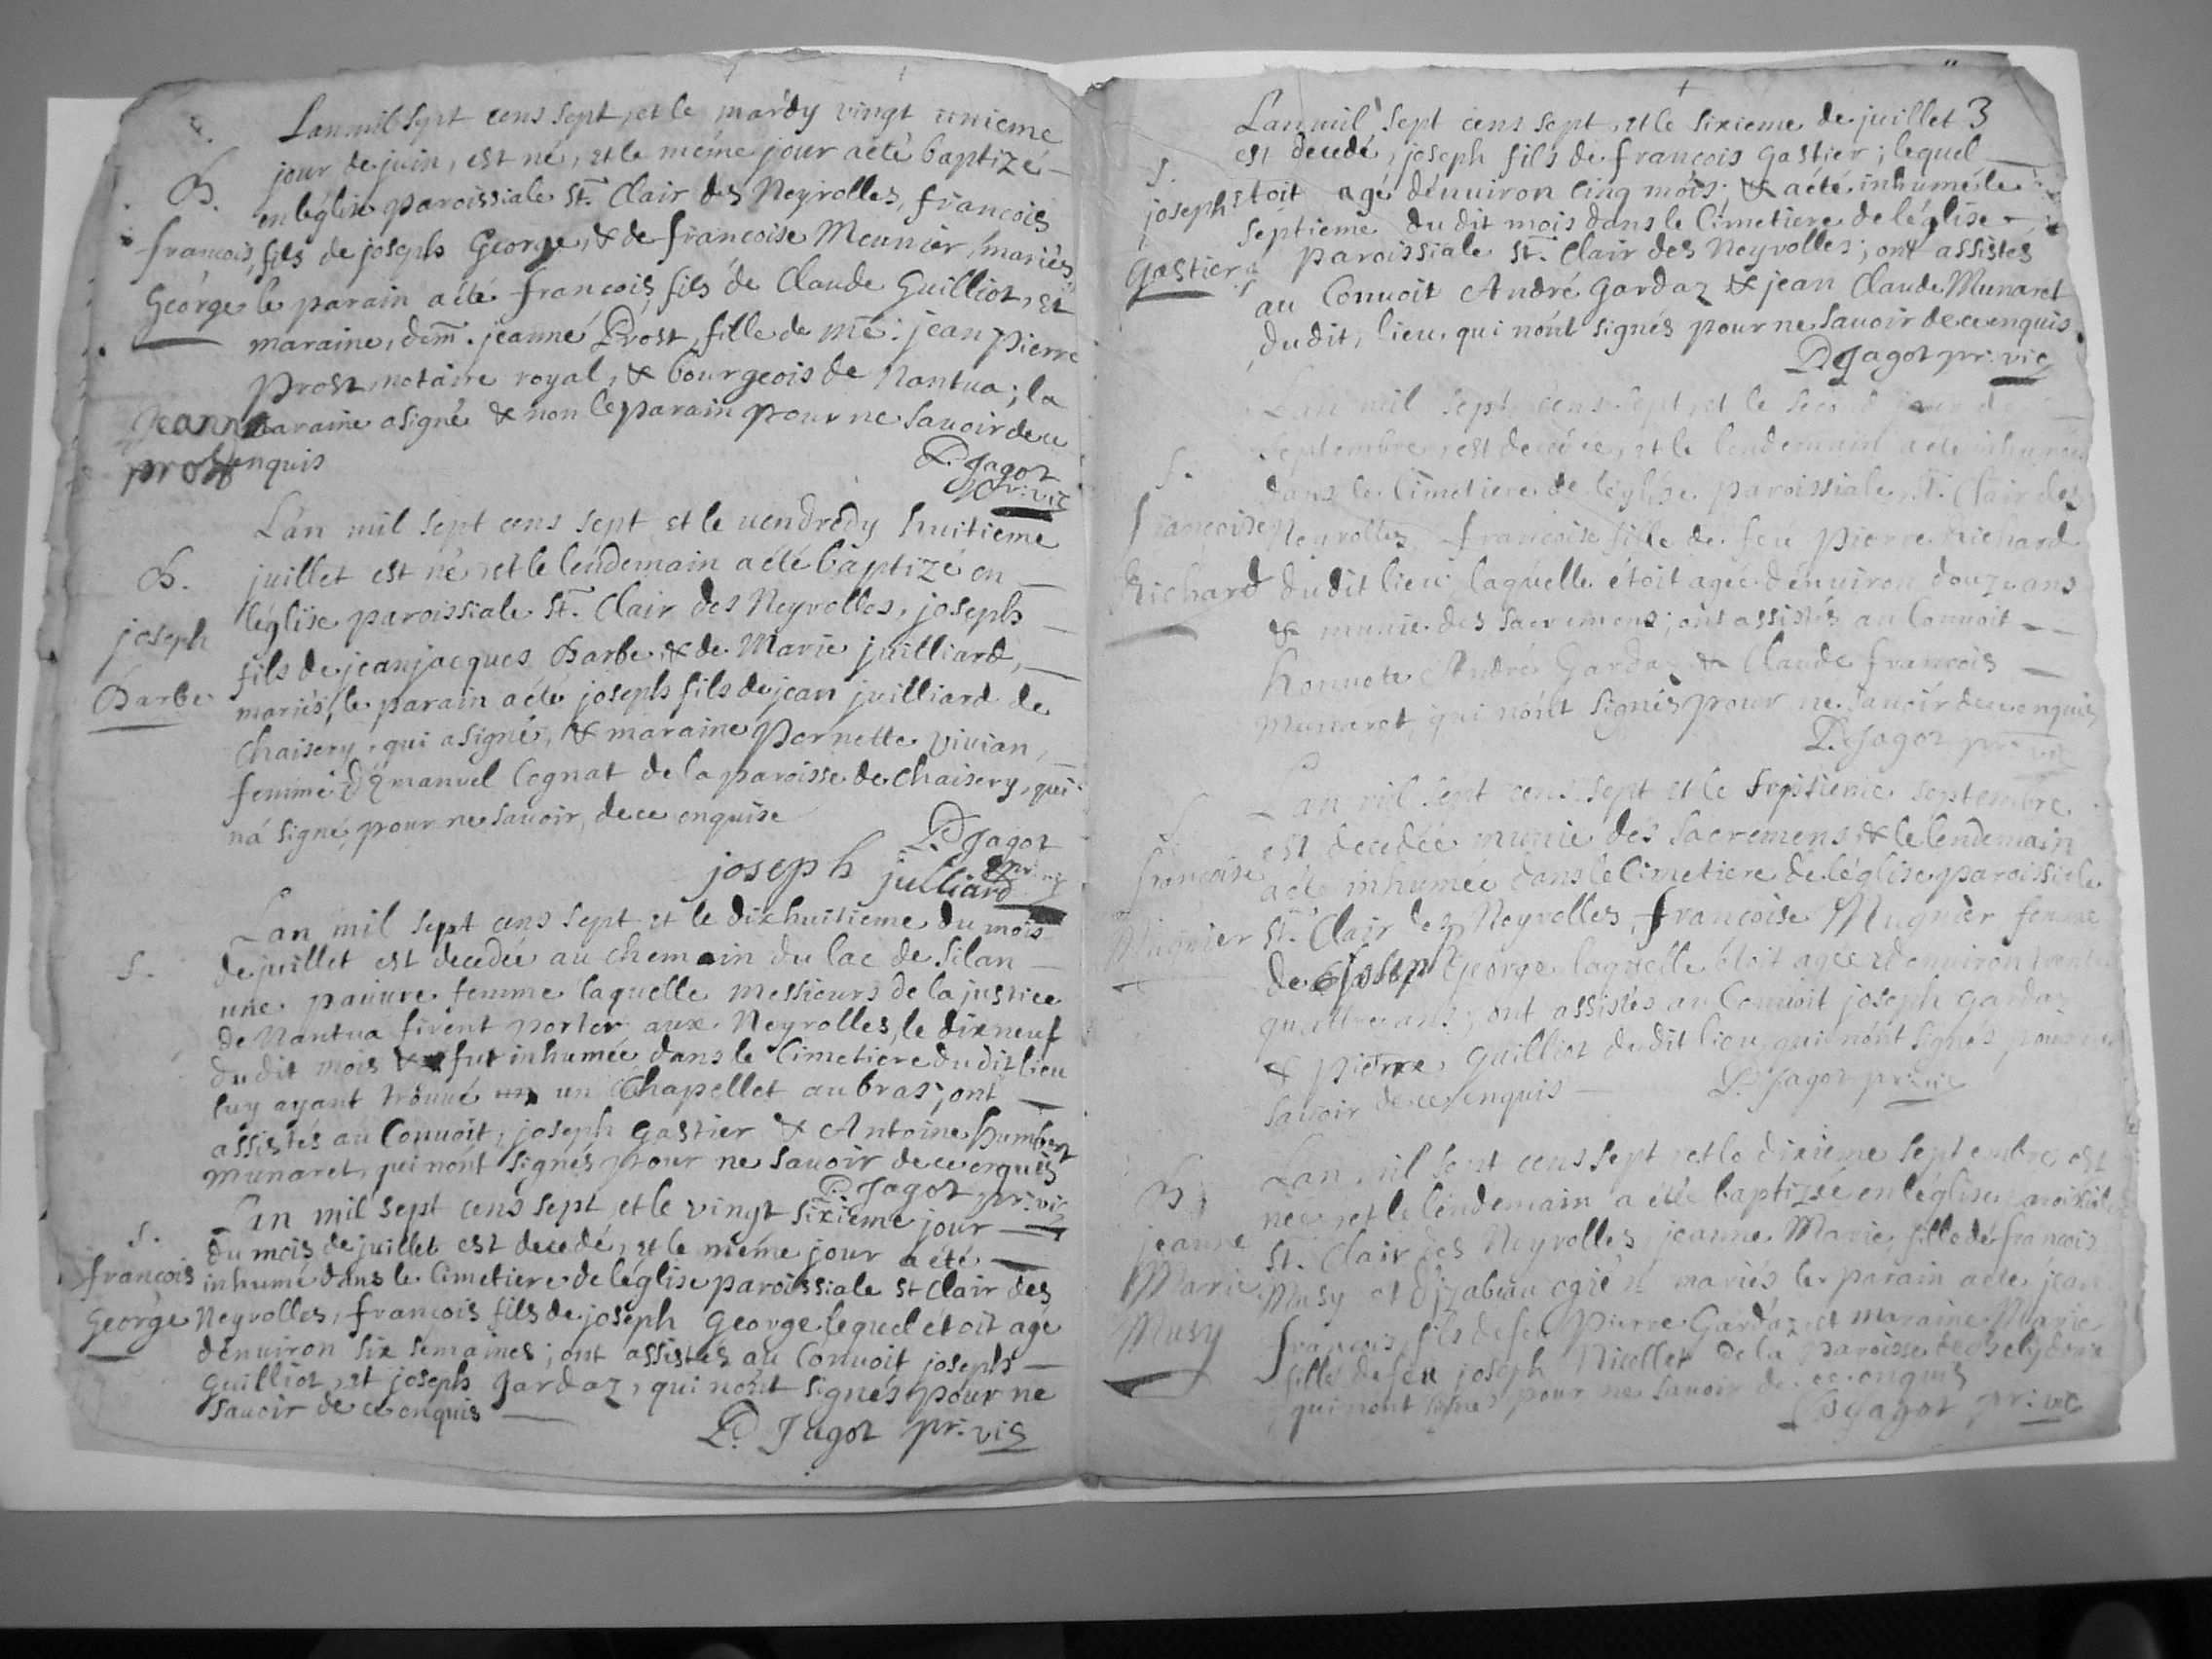 Lan mil sept cens sept, et le mardy vingt unieme
jour de juin, est né, et le méme jour aété baptizé
B.
en léglise paroissiale St. Clair des Neyrolles, francois
francois, fils de joseph George, & de francoise Meunier, mariés
George le parain aété francois, fils de Claude Guilliot, et
maraine, dem. jeanne Prost, fille de me. jean pierre
prost notaire royal, & bourgeois de Nantua; la
maraine asigné & non le parain pour ne savoir de ce
enquis
jeanne
prost
P. Jagot
pr. vic
Lán mil sept cens sept et le vendredy huitieme
juillet est né et le lendemain aété baptizé en
B.
léglise paroissiale St. Clair des Neyrolles, joseph
joseph
fils de jean jacques Barbe & de Marie juilliard,
Barbe
mariés, le parain aété joseph fils de jean juilliard de
Chaisery, qui asigné, & maraine Pernette vivian,
femme dEmanuel Cognat de la paroisse de Chaisery, qui
ná signé, pour ne savoir, de ce enquise
P. Jagot
pr. vic
joseph julliard
Lan mil sept cens sept et le dixhuitieme du mois
S.
de juillet est decedée au chemain du lac de Silan
une pauvre femme laquelle Messieurs de la justice
de Nantua firent porter aux Neyrolles, le dixneuf
du dit mois & fut inhumée dans le Cimetiere du dit lieu
luy ayant trouvé un Chapellet au bras; ont
assistés au Convoit, joseph gastier & Antoine humbert
munaret, qui nónt signés pour ne savoir de ce enquis
P. Jagot pr. vic
Lan mil sept cens sept, et le vingt sixieme jour
S.
du mois de juillet est decedé, et le méme jour aété
francois inhumé dans le Cimetiere de léglise paroissiale St Clair des
George Neyrolles, francois fils de joseph George lequel étoit agé
dénviron six semaines; ont assistés au Convoit joseph
guilliot, et joseph gardaz, qui nónt signés pour ne
savoir de ce enquis
P. Jagot pr. vic
3
Lan mil sept cens sept, et le sixieme de juillet
est decedé, joseph fils de françois gastier; lequel
S.
joseph étoit agé dénviron cinq mois; & aété inhumé le
septieme du dit mois dans le Cimetiere de léglise
gastier paroissiale St. Clair des Neyrolles; ont assistés
au Convoit André gardaz & jean Claude Munaret
du dit, lieu, qui nónt signés pour ne savoir de ce enquis
P. Jagot pr. vic
Lan mil sept cens sept, et le second jour d
septembre, est decedée, et le lendemain aété inhumée
S.
dans le Cimetiere de léglise paroissiale, St. Clair des
francoise Neyrolles, francoise fille de feu pierre Richard
Richard du dit lieu laquelle étoit agée dénviron douze ans
& munie des sacremens; ont assistés au Convoit
André Gardaz & Claude francois
Munaret, qui nónt signés pour ne savoir de ce enquis
P. Jagot pr. vic
Lan mil sept cens sept et le septieme septembre
S.
est decedée munie des sacremens & le lendemain
francoise aété inhumée dans le Cimetiere de léglise paroissiale
Mugnier St. Clair des Neyrolles, francoise Mugnier femme
de joseph George laquelle étoit agée dénviron trente
quattre ans; ont assistés au Convoit joseph gardaz
& pierre, guilliot du dit lieu qui nónt signés pour ne
savoir de ce enquis
P. Jagot pr. vic
Lan mil sept cens sept et le dixieme septembre est
B.
née, et le lendemain a été baptizée en léglise paroissiale
jeanne St. Clair des Neyrolles, jeanne Marie fille de francois
Marie Musy et mariés le parain aété jean
Musy francois, fils de feu Pierre Gardaz et maraine Marie
fille de feu joseph Nicollet de la paroisse
qui nont signés pour ne savoir de ce enquis
P. Jagot pr. vic